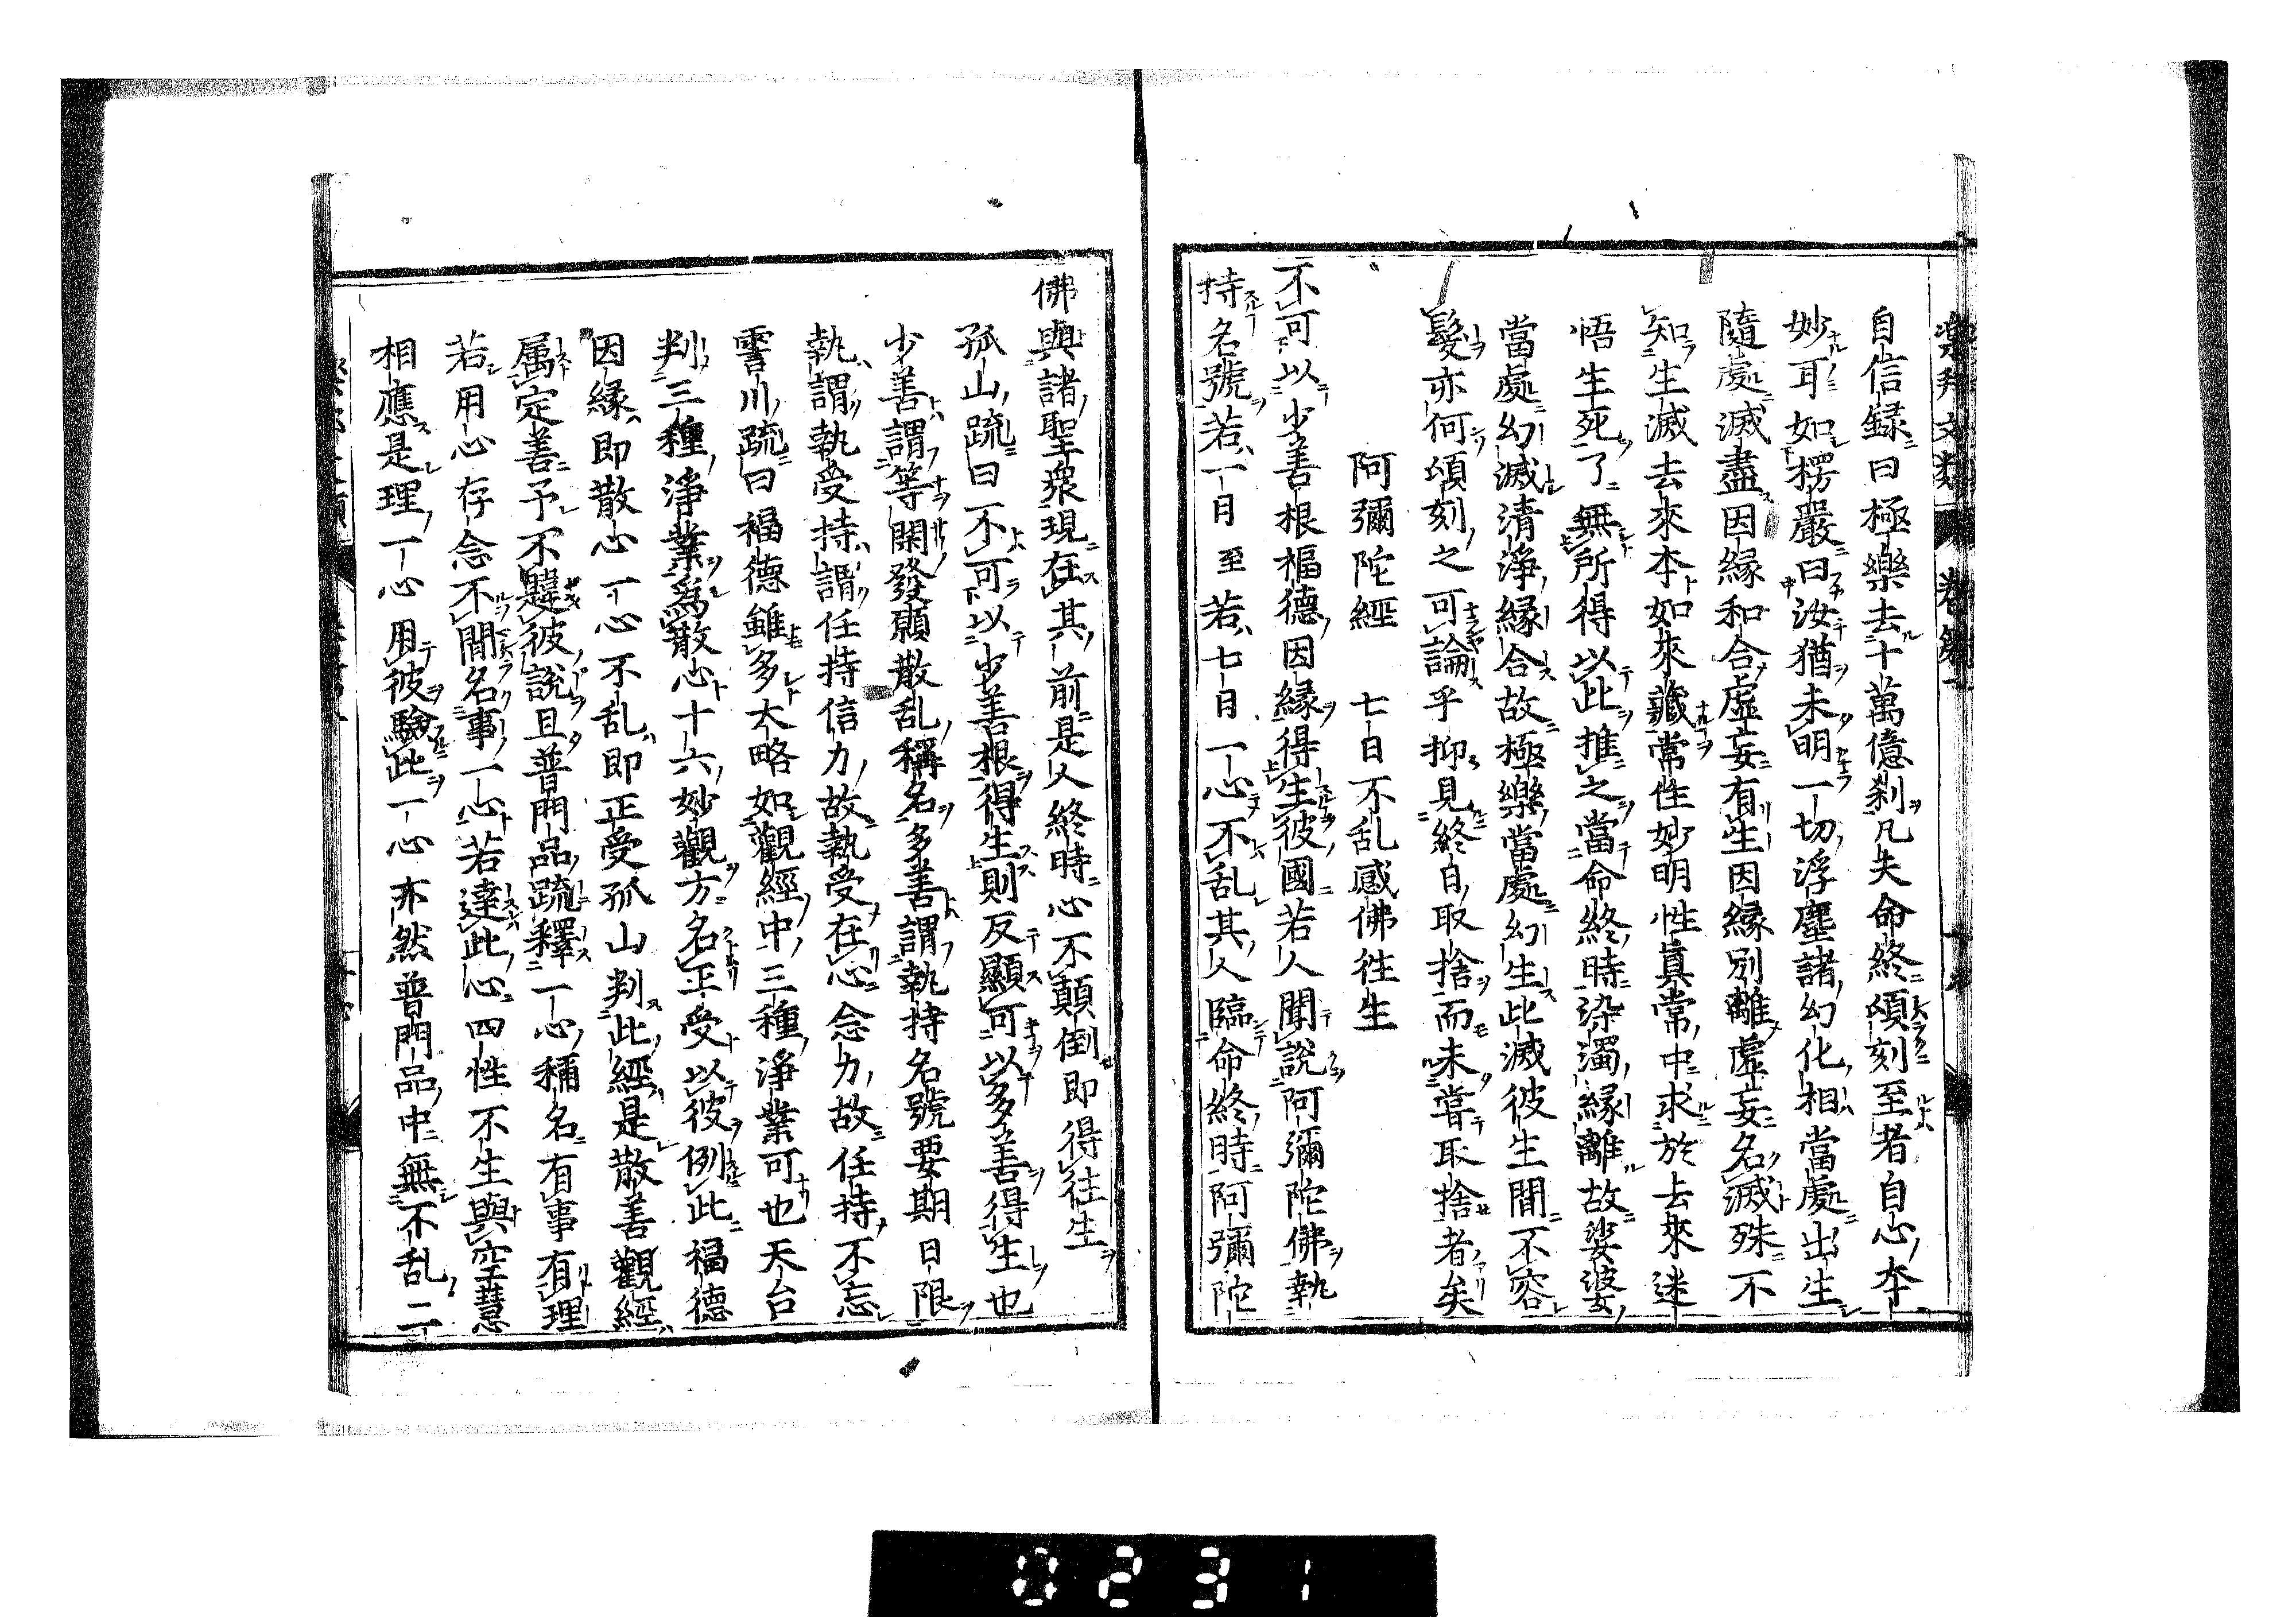 自信録曰極樂去十萬億刹凡夫命終頃刻至者自心本
妙耳如楞嚴曰汝猶未明一切浮塵諸幻化相當處出生
隨處滅盡因縁和合虚妄有生因縁別離虚妄名滅殊不
知生滅去來本如來藏常性妙明性真常中求於去來迷
悟生死了無所得以此推之當命終時染濁縁離故娑婆
當處幻滅清淨縁合故極樂當處幻生此滅彼生間不容
髮亦何頃刻之可論乎抑見終日取捨而未嘗取捨者矣
阿彌陀經　七日不乱感佛往生
不可以少善根福德因縁得生彼國若人聞説阿彌陀佛執
持名號若一日至若七日一心不乱其人臨命終時阿彌陀
佛與諸聖衆現在其前是人終時心不顛倒即得往生
孤山疏曰不可以少善根得生則反顯可以多善得生也
少善謂等閑發願散乱稱名多善謂執持名號要期日限
執謂執受持謂任持信力故執受在心念力故任持不忘
霅川疏曰福德雖多大略如觀經中三種淨業可也天台
判三種淨業爲散心十六妙觀方名正受以彼例此福德
因縁即散心一心不乱即正受孤山判此經是散善觀經
属定善予不韙彼説且普門品疏釋一心稱名有事有理
若用心存念不間名事一心若達此心四性不生與空慧
相應是理一心用彼驗此一心亦然普門品中無不乱二
0231